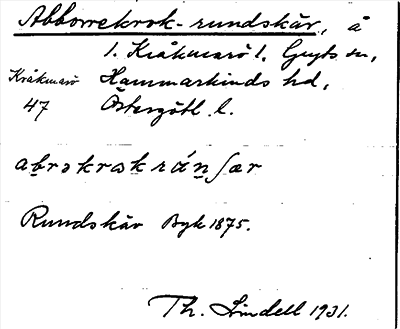 Abborrekrok-rundskär, å
l. Kråkmarö l, Gryts sn,
Kråkmarö Hammarkinds hd,
47 Östergötl. l.
abrəkrəkrán̲ʃær
Rundskär Byk 1875.
Th. Lindell 1931.